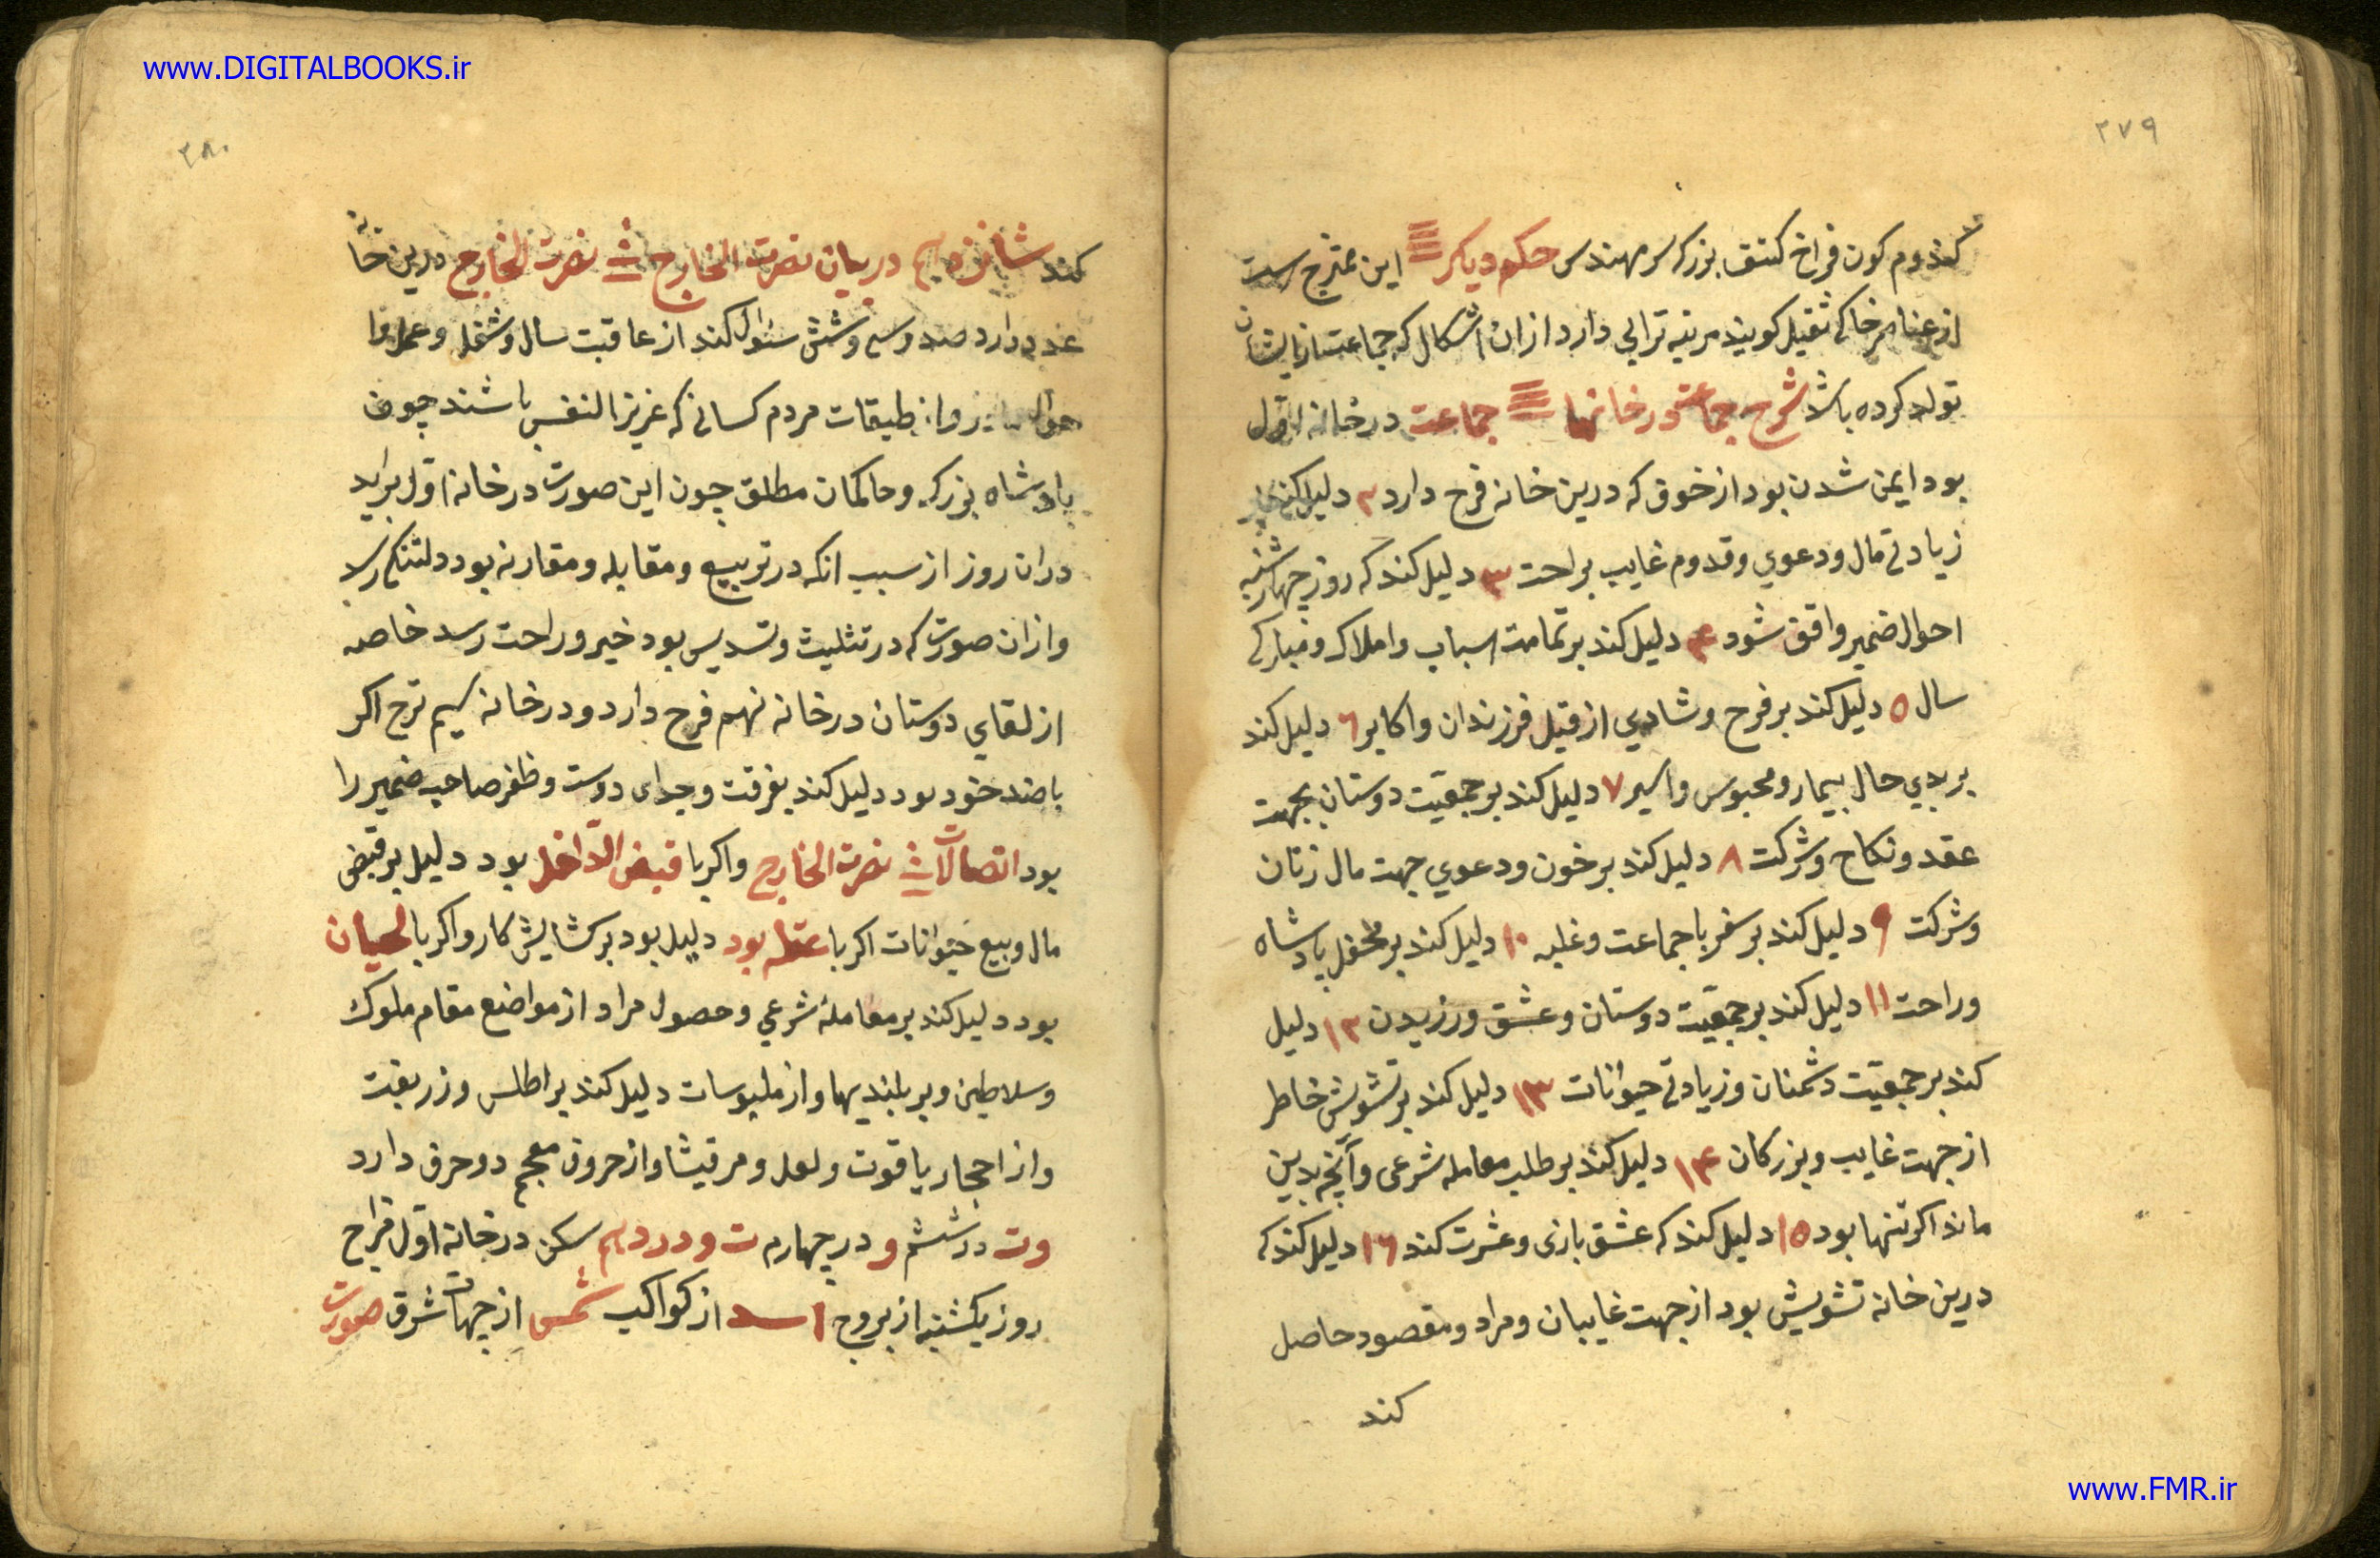 www.DIGITALBOOKS.ir
۳۷۹
کندوم کون فراخ کتف بزرک سر مهندس حکم دیکر این ممتزج است
از عناصر خاکی ثقیل کویند مرتبه ترابی دارد ازان اشکال که جماعت از ایشان
تولد کرده باشد شرح جماعت در خانها جماعت در خانه اول
بود ایمن شدن بود از خوف که درین خانه فرح دارد ۲ دلیل کند بر
زیادتی مال ودعوي وقدوم غایب براحت ۳ دلیل کند که روز چهارشنبه
احوال ضمیر واقف شود ۴ دلیل کند بر تمامت اسباب واملاک ومبارکی
سال ۵ دلیل کند بر فرح وشادي از قبل فرزندان واکابر ۶ دلیل کند
بر بدي حال بیمار ومحبوس واسیر ۷ دلیل کند بر جمعیّت دوستان بجهت
عقد ونکاح وشرکت ۸ دلیل کند بر خون ودعوي جهت مال زنان
وشرکت ۹ دلیل کند بر سفر با جماعت وغلبه ۱۰ دلیل کند بر محفل پادشاه
وراحت ۱۱ دلیل کند بر جمعیّت دوستان وعشق ورزیدن ۱۲ دلیل
کند بر جمعیّت دشمنان وزیادتی حیوانات ۱۳ دلیل کند بر تشویش خاطر
از جهت غایب وبزرکان ۱۴ دلیل کند بر طلب معامله شرعی وآنچه بدین
ماند اکر تنها بود ۱۵ دلیل کند که عشق بازی وعشرت کند ۱۶ دلیل کند که
درین خانه تشویش بود از جهت غایبان ومراد ومقصود حاصل
کند
۳۸۰
کند شانزدهم در بیان نصرت الخارج نصرت الخارج درین خانه
عدد دارد صد وسی وشش سئوال کند از عاقبت سال وشغل وعمل و
احوال واز طبقات مردم کسانی که عزیز النفس باشند چون
پادشاه بزرک وحاکمان مطلق چون این صورت در خانه اول براید
دران روز از سبب انکه در تربیع ومقابله ومقارنه بود دلتنکی رسد
وازان صورت که در تثلیث وتسدیس بود خیر وراحت رسد خاصه
از لقاي دوستان در خانه نهم فرح دارد ودر خانه سیم ترح اکر
با ضد خود بود دلیل کند بفرقت وجدای دوست وظفر صاحب ضمیر را
بود اتصالات نصرت الخارج واکر با قبض الدّاخل بود دلیل بر قبض
مال وبیع حیوانات اکر با عقله بود دلیل بود بر کشایش کار واکر با لحیان
بود دلیل کند بر معاملهٔ شرعي وحصول مراد از مواضع مقام ملوک
وسلاطین وبر بلندیها واز ملبوسات دلیل کند بر اطلس وزربفت
واز احجار یاقوت ولعل ومرقیشا واز حروف معجم دو حرف دارد
وت در ششم و در چهارم ت ودر دهم سکن در خانه اول فراح
روز یکشنبه از بروج اسد از کواکب شمس از جهات شرق صورت
www.FMR.ir